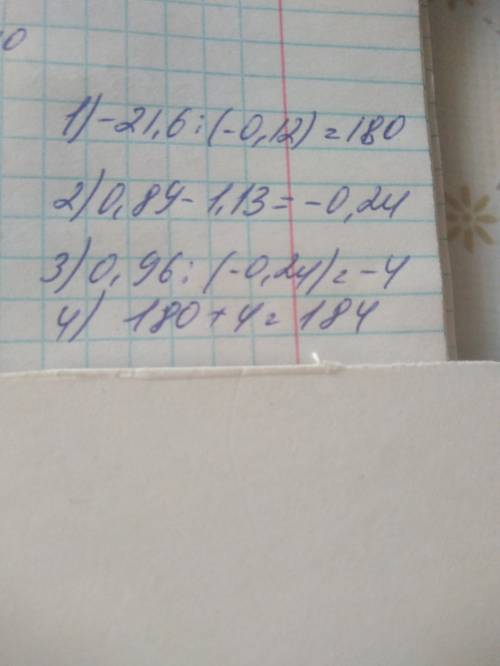 0
1) -21,6 : (-0,12) = 180
2) 0,89 - 1,13 = -0,24
3) 0,96 : (-0,24) = -4
4) 180 + 4 = 184